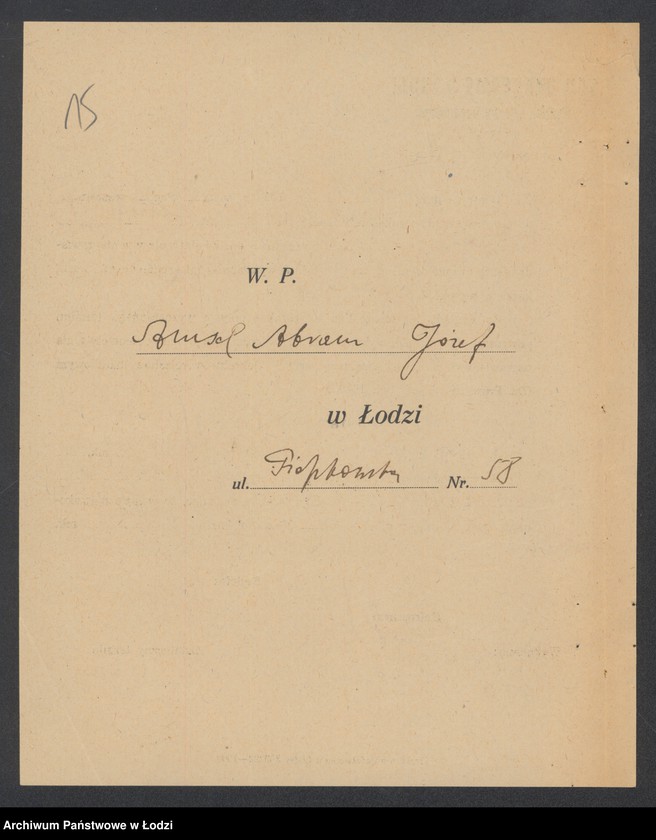 15
W. P.
Amsel Abram Józef
w Łodzi
ul. Piotrkowska Nr. 58
Archiwum Państwowe w Łodzi